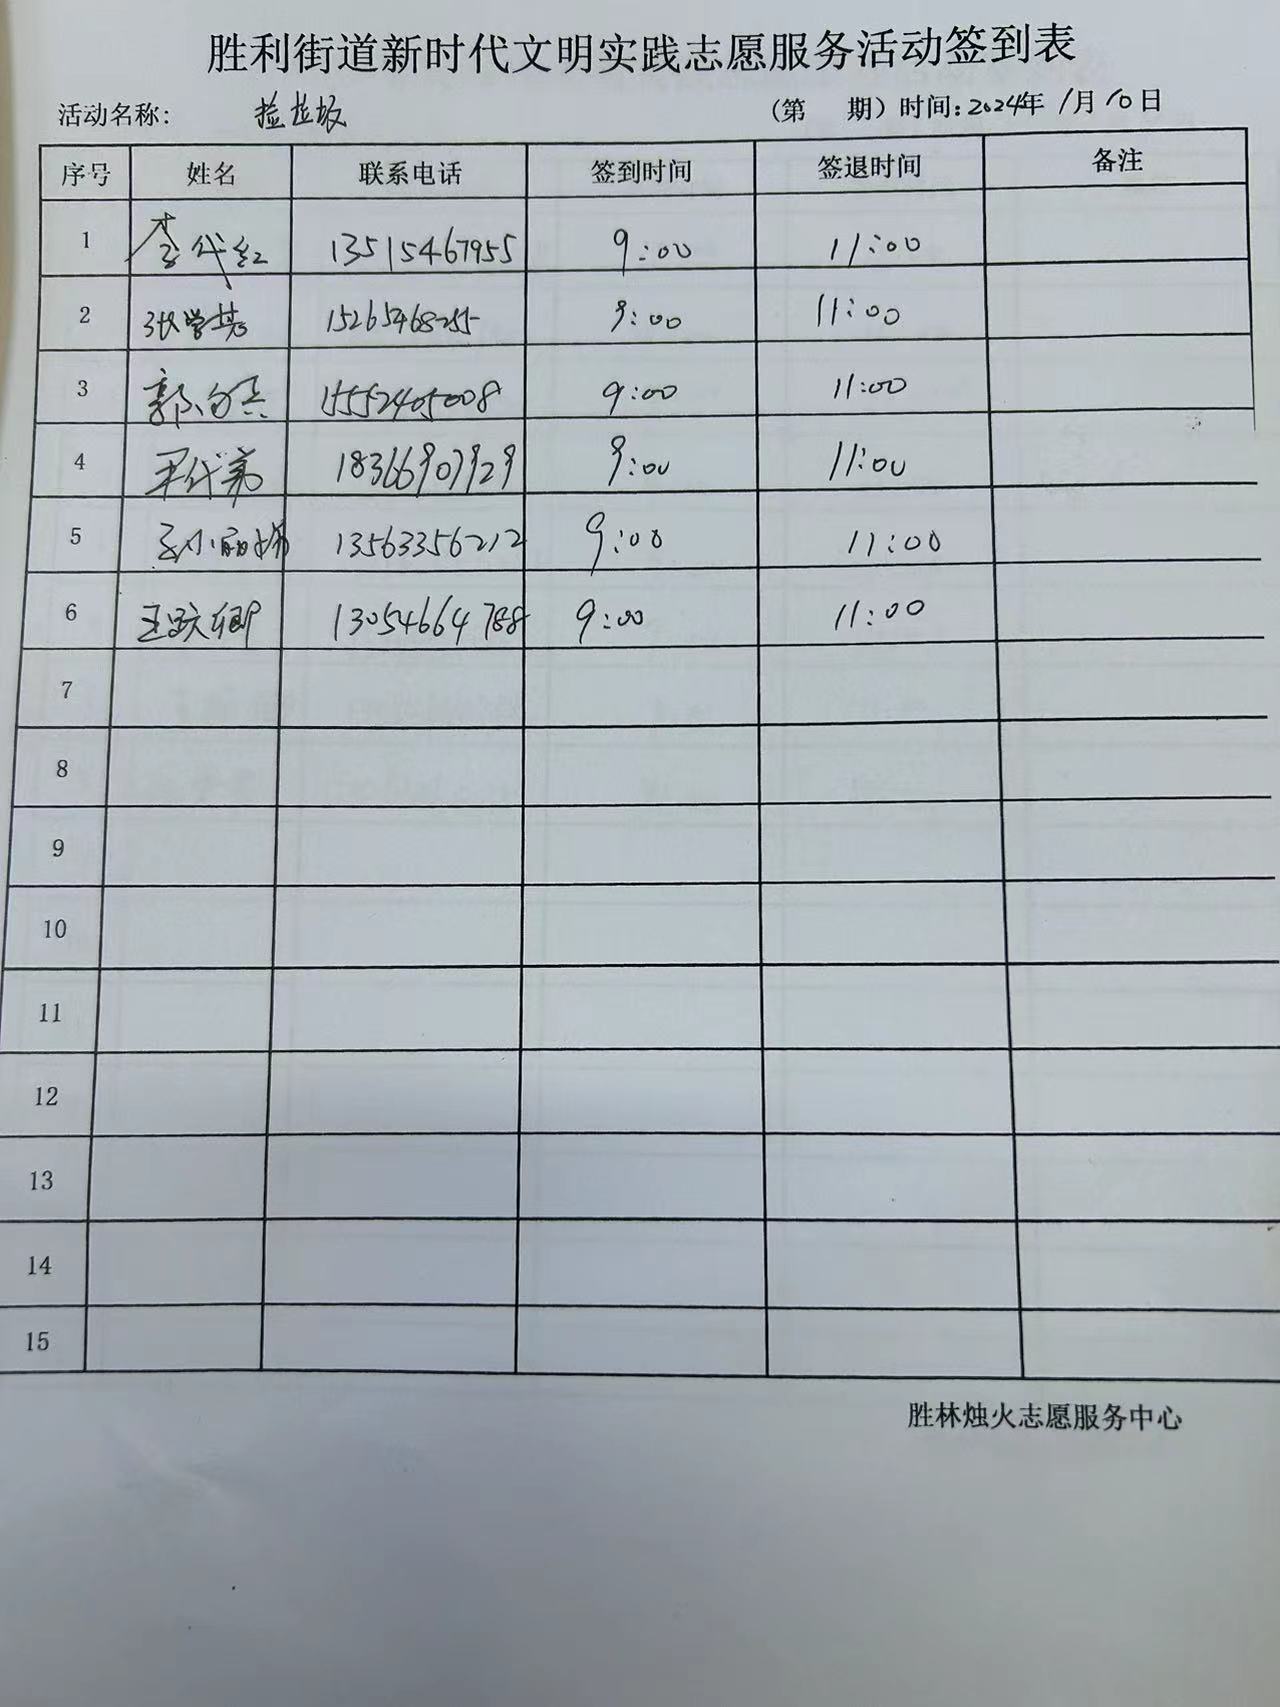 胜利街道新时代文明实践志愿服务活动签到表
活动名称: 捡垃圾 (第 期) 时间:2024年 1月10日
序号 姓名 联系电话 签到时间 签退时间 备注
1 李代红 13515467955 9:00 11:00
2 张学英 15265468255 9:00 11:00
3 郭 15552405008 9:00 11:00
4 18366907929 9:00 11:00
5 13563356212 9:00 11:00
6 13054664788 9:00 11:00
7
8
9
10
11
12
13
14
15
胜林烛火志愿服务中心